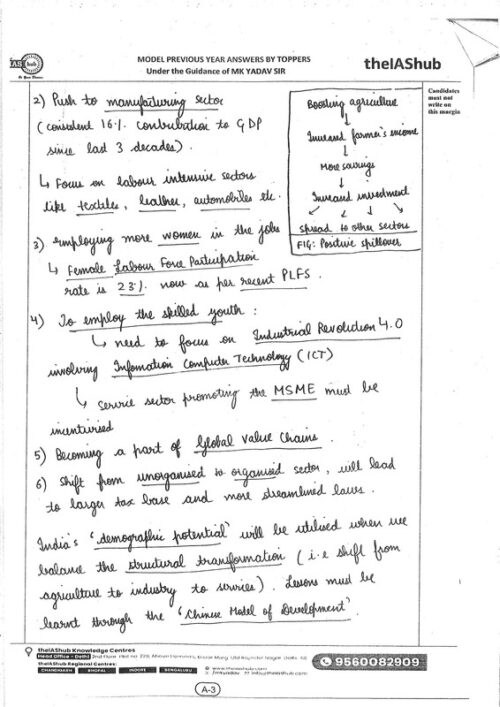 IAS hub
MODEL PREVIOUS YEAR ANSWERS BY TOPPERS
Under the Guidance of MK YADAV SIR
theIAShub
Candidates
must not
write on
this margin
2) Push to manufacturing sector
(consistent 16% contribution to GDP
since last 3 decades).
↳ Focus on labour intensive sectors
like textiles, leather, automobiles etc.
Boosting agriculture
↓
Increased farmer's income
↓
More savings
↓
Increased investment
↓ ↓ ↓ ↓
spread to other sectors
FIG: Positive spillover
3) Employing more women in the jobs
↳ Female Labour Force Participation
rate is 23% now as per recent PLFS.
4) To employ the skilled youth:
↳ need to focus on Industrial Revolution 4.0
involving Information Computer Technology (ICT)
↳ Service sector promoting the MSME must be
incentivised
5) Becoming a part of Global Value Chains.
6) Shift from unorganised to organised sector, will lead
to larger tax base and more streamlined laws.
India's 'demographic potential' will be utilised when we
balance the structural transformation (i.e shift from
agriculture to industry to services). Lessons must be
learnt through the 'Chinese Model of Development'.
theIAShub Knowledge Centres
Head Office - Delhi
theIAShub Regional Centres:
CHANDIGARH BHOPAL INDORE BENGALURU
9560082909
A-3